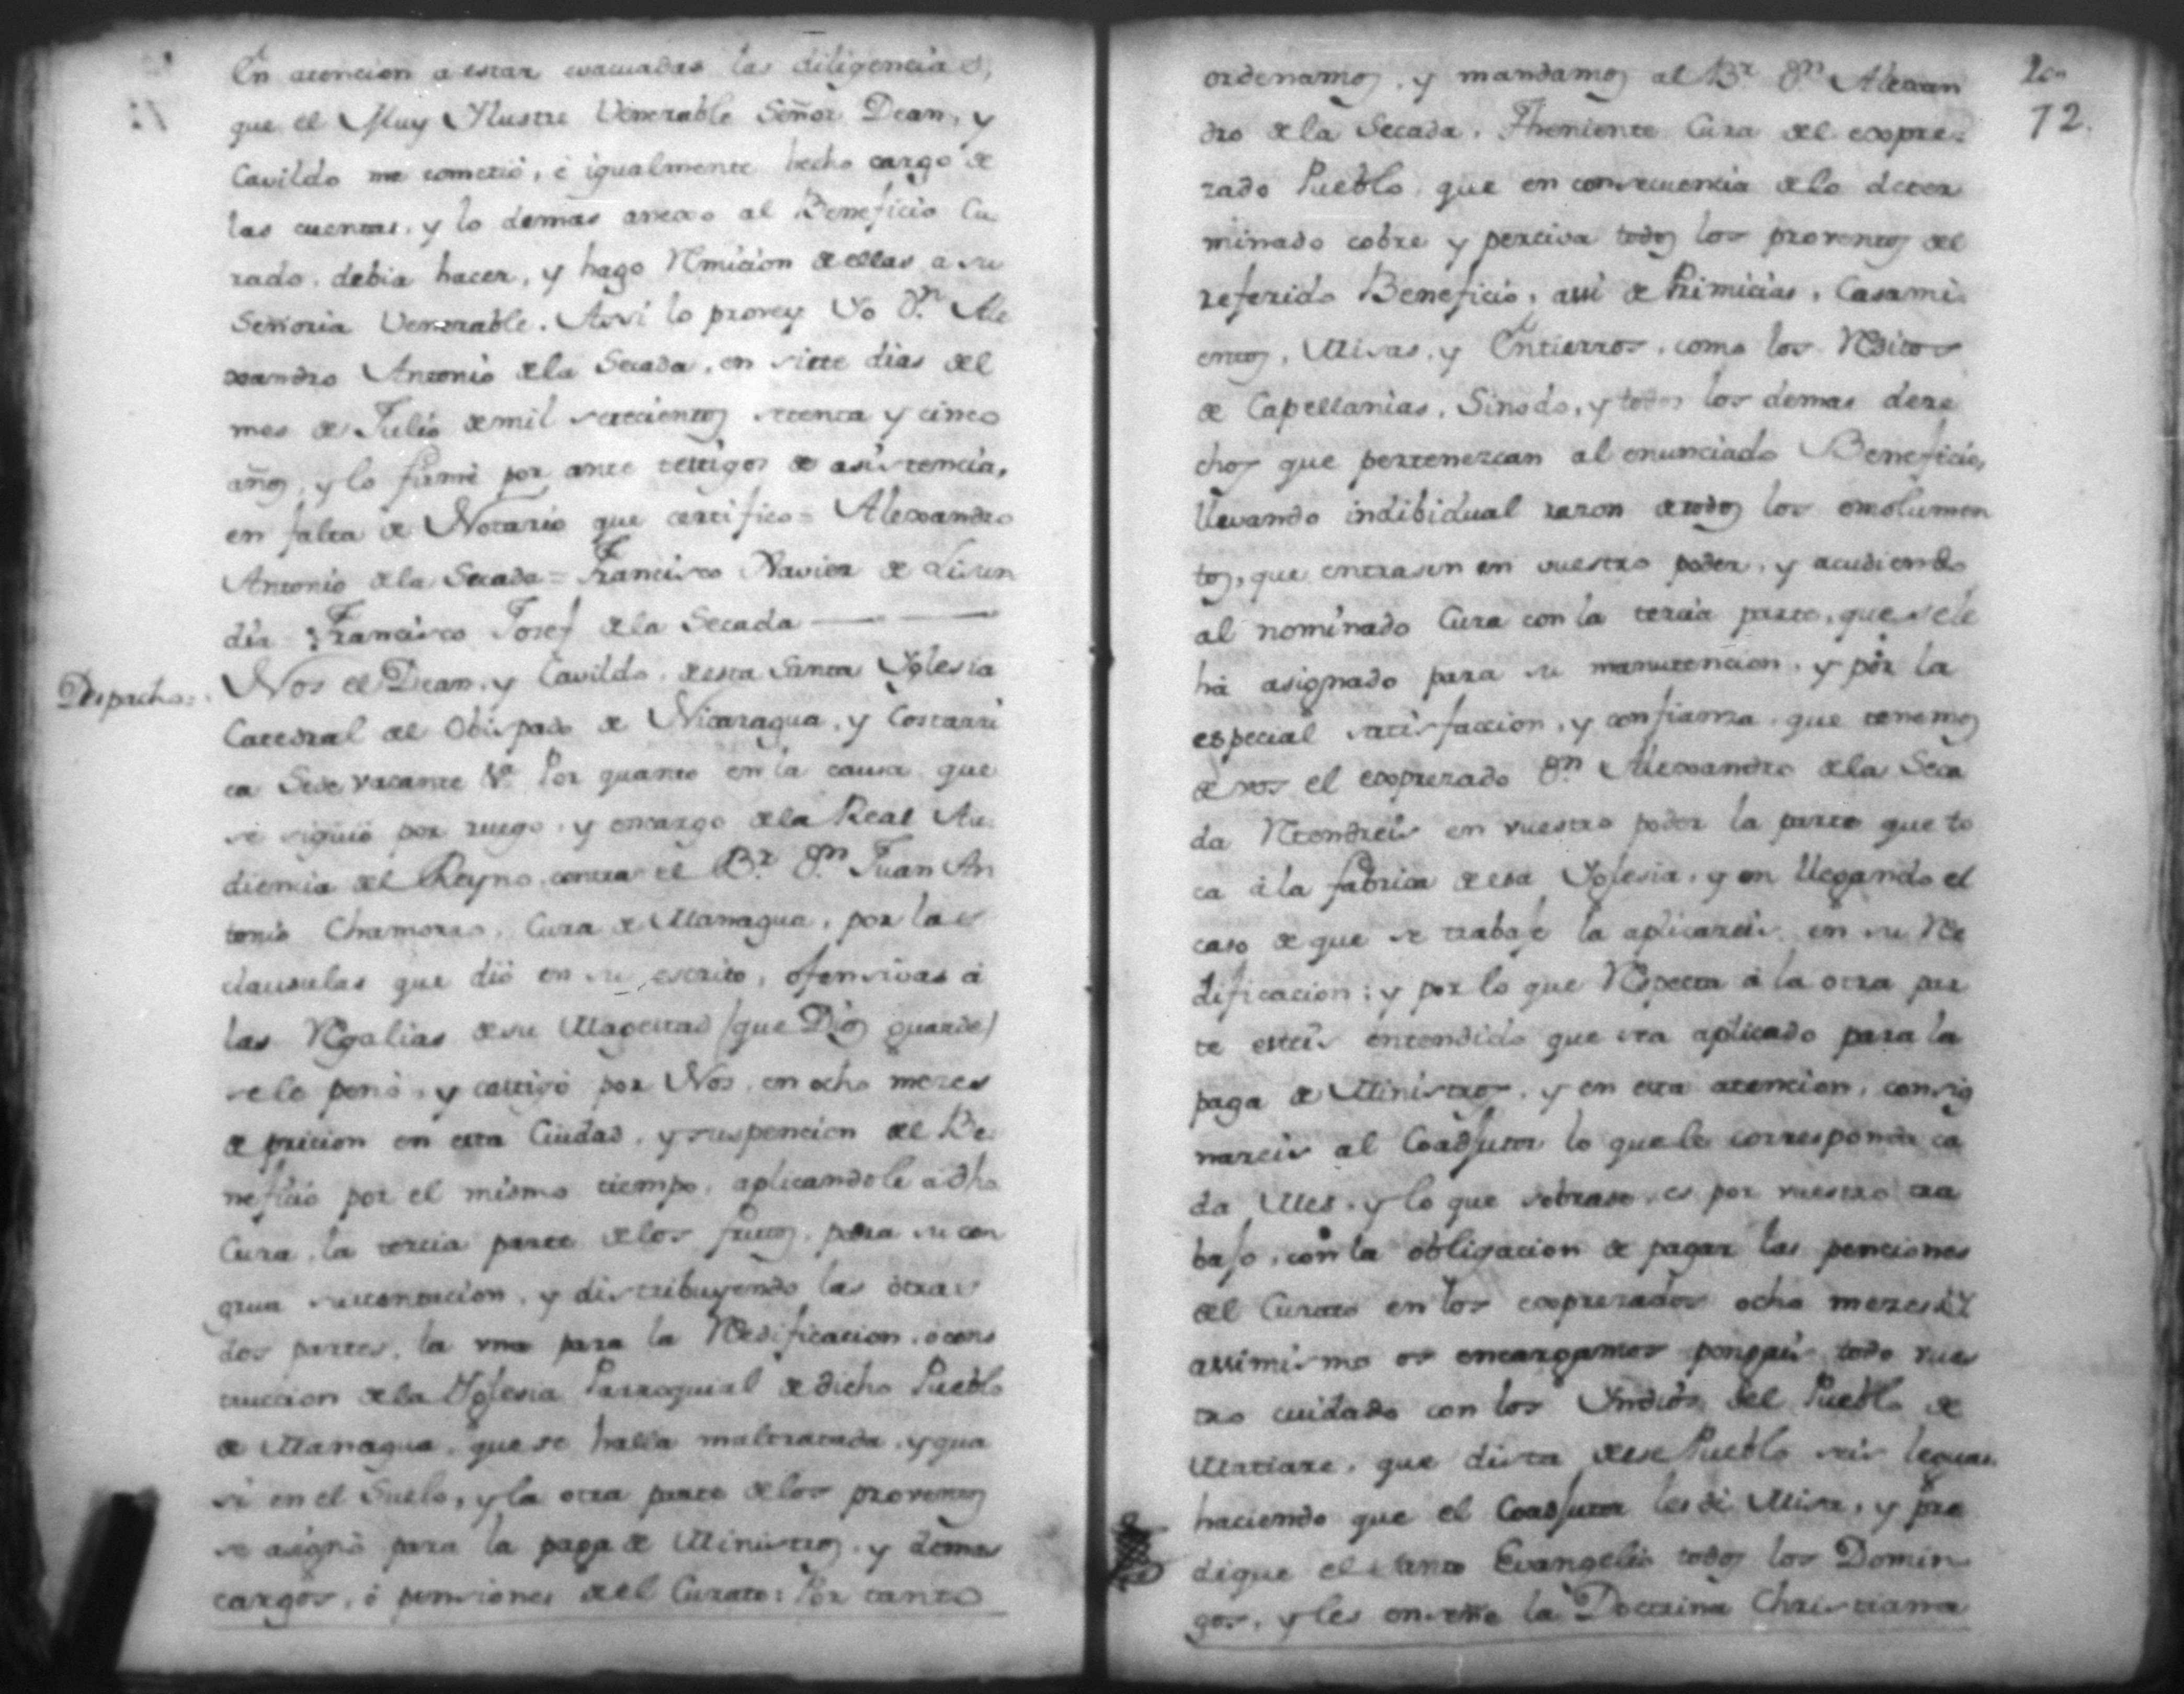 En atencion a estar evacuadas las diligencias,
que el Muy Ylustre Venerable Señor Dean, y
Cavildo me cometió, é igualmente hecho cargo de
las cuentas, y lo demas anexo al Beneficio Cu
rado, debia hacer, y hago Rmicion de ellas a su
Señoria Venerable. Assi lo provey Yo Dn. Ale
xandro Antonio de la Secada, en siete dias del
mes de Julio de mil setecientos setenta y cinco
años, y lo firmé por ante testigos de asistencia,
en falta de Notario que certifico = Alexandro
Antonio de la Secada = Francisco Xavier de Lisun
dia = Francisco Josef de la Secada
Despacho =
Nos el Dean, y Cavildo, de esta Santa Yglesia
Catedral del Obispado de Nicaragua, y Costarri
ca Sede vacante Va. Por quanto en la causa que
se siguió por ruego, y encargo de la Real Au
diencia del Reyno, contra el Br. Dn. Juan An
tonio Chamorro, Cura de Managua, por las
clausulas que dió en su escrito, ofensivas á
las Rgalias de su Magestad (que Dios guarde)
se le penó, y castigó por Nos, en ocho meses
de pricion en esta Ciudad, y suspencion del Be
neficio por el mismo tiempo, aplicandole a dho
Cura, la tercia parte de los frutos, para su con
grua sustentacion, y distribuyendo las otras
dos partes, la una para la Redificacion, ó cons
truccion de la Yglesia Parroquial de dicho Pueblo
de Managua, que se halla maltratada, y qua
si en el Suelo, y la otra parte de los proventos
se asignó para la paga de Ministros, y demas
cargos, ó penciones del Curato: Por tanto
200
72.
ordenamos, y mandamos al Br. Dn. Alexan
dro de la Secada, Theniente Cura del expre-
zado Pueblo, que en consecuencia de lo deter
minado cobre y perciva todos los proventos del
referido Beneficio, assi de Primicias, Casami
entos, Misas, y Entierros, como los Rditos
de Capellanias, Sinodo, y todos los demas dere
chos que pertenezcan al enunciado Beneficio,
llevando indibidual razon de todos los emolumen
tos, que entrasen en vuestro poder, y acudiendo
al nominado Cura con la tercia parte, que se le
há asignado para su manutencion, y por la
especial satisfaccion, y confianza, que tenemos
de vos el exprezado Dn. Alexandro de la Seca
da Rtendreis en vuestro poder la parte que to
ca á la fabrica de esa Yglesia, y en llegando el
caso de que se trabaje la aplicareis en su Re
dificacion; y por lo que Respecta á la otra par
te esteis entendido que esta aplicado para la
paga de Ministros, y en esta atencion, consig
nareis al Coadjutor lo que le corresponde ca
da Mes, y lo que sobrase, es por vuestro tra
bajo, con la obligacion de pagar las penciones
del Curato en los exprezados ocho meses. Y
assimismo os encargamos pongais todo vues
tro cuidado con los Yndios del Pueblo de
Matiare, que dista de ese Pueblo seis leguas,
haciendo que el Coadjutor les dé Misa, y pre
dique el Santo Evangelio todos los Domin
gos, y les enseñe la Doctrina Christiana